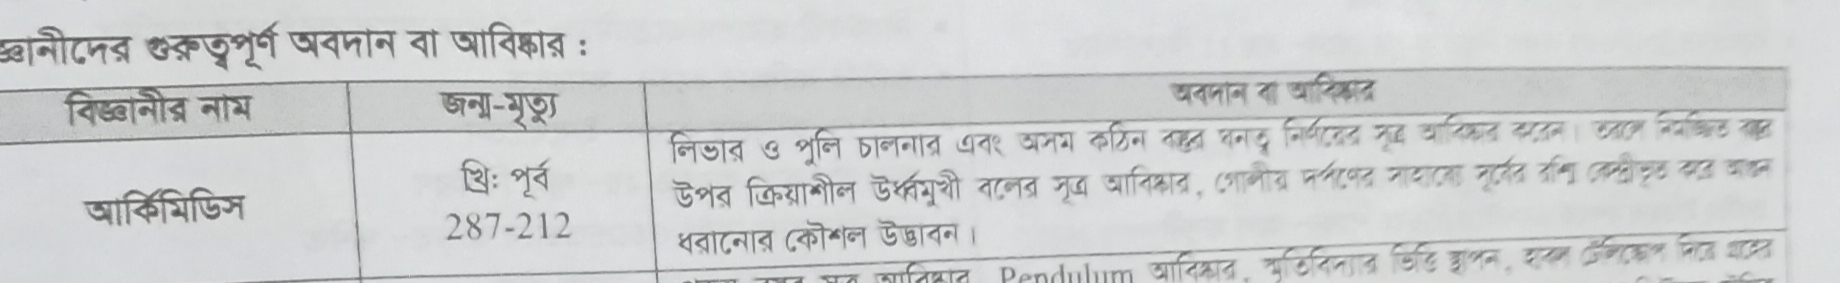 গুরুত্বপূর্ণ অবদান বা আবিষ্কার :
বিজ্ঞানীর নাম
জন্ম-মৃত্যু
অবদান বা আবিষ্কার
আর্কিমিডিস
খ্রি: পূর্ব
287-212
লিভার ও পুলি চালনার এবং অসম কঠিন বস্তুর ঘনত্ব নির্ণয়ের সূত্র আবিষ্কার করেন।
উপর ক্রিয়াশীল উর্ধ্বমুখী বলের সূত্র আবিষ্কার, গোলীয় দর্পণের সাহায্যে সূর্যের রশ্মি কেন্দ্রীভূত করে আগুন
ধরানোর কৌশল উদ্ভাবন।
সূত্র আবিষ্কার, Pendulum আবিষ্কার,